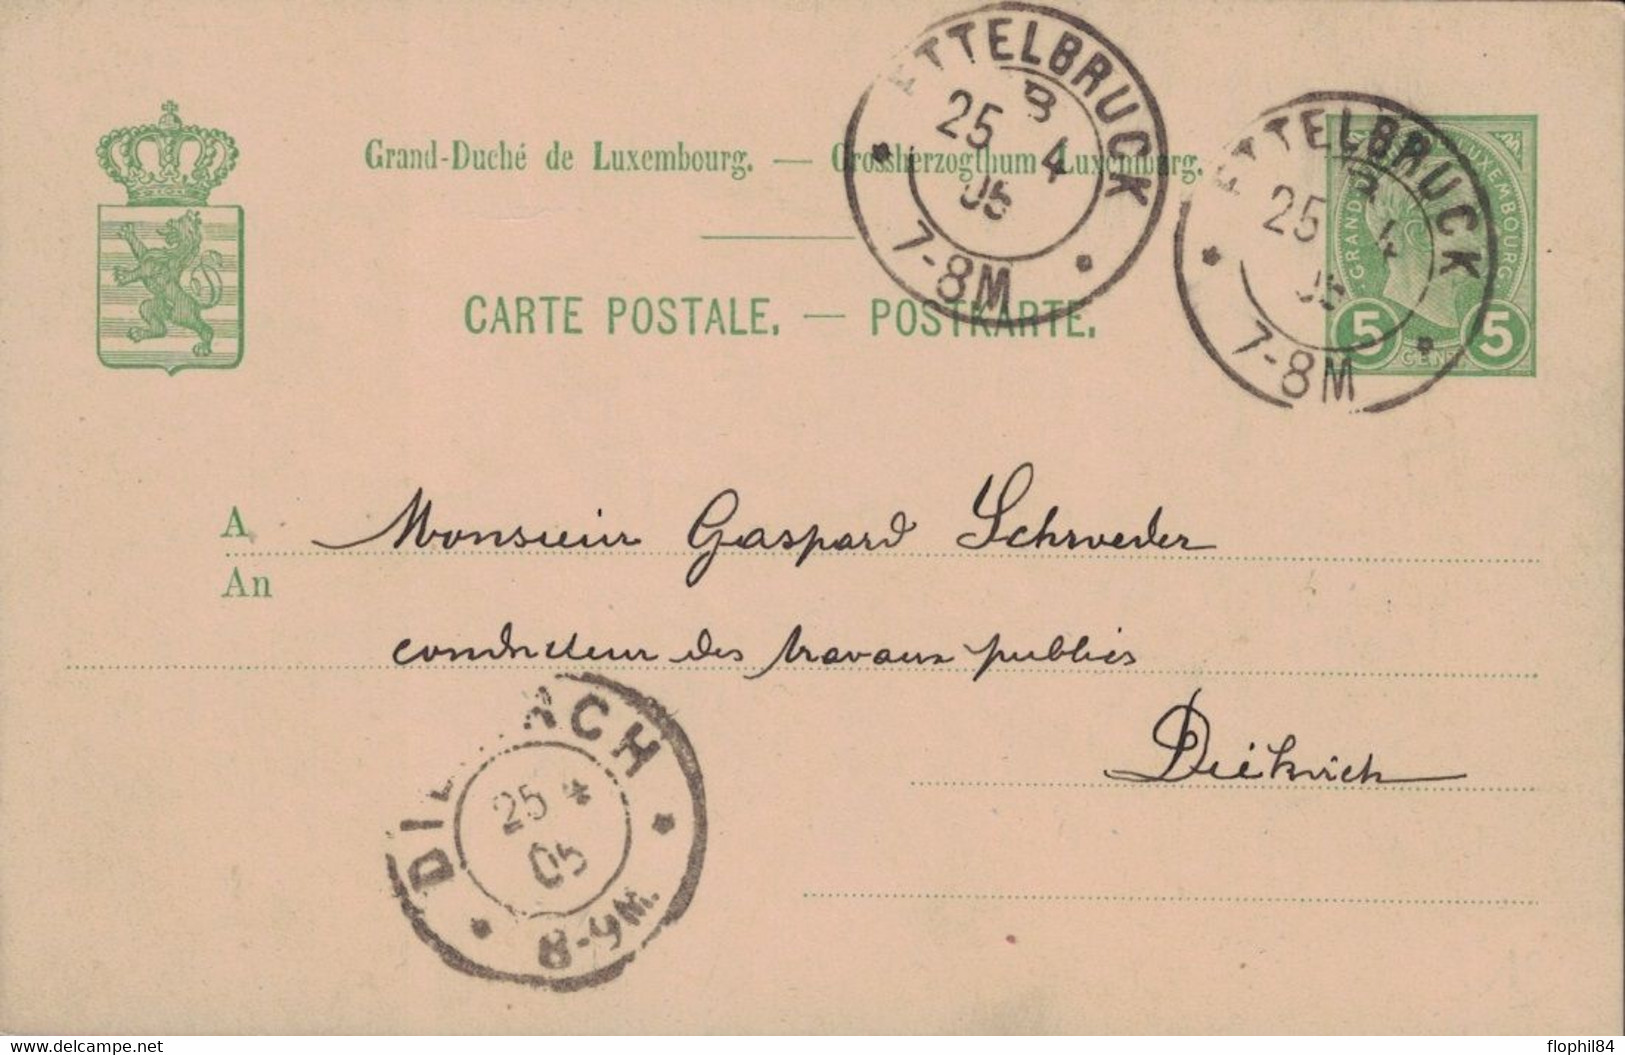 ETTELBRUCK
B
25 4
05
7-8M
ETTELBRUCK
B
25 4
05
7-8M
Grand-Duché de Luxembourg. — Grossherzogthum Luxemburg.
GRAND LUXEMBOURG
5 CENT. 5
CARTE POSTALE. — POSTKARTE.
A Monsieur Gaspard Schroeder
An
conducteur des travaux publics
Diekirch
DIE CH
25 4
05
8-9M.
flophil84